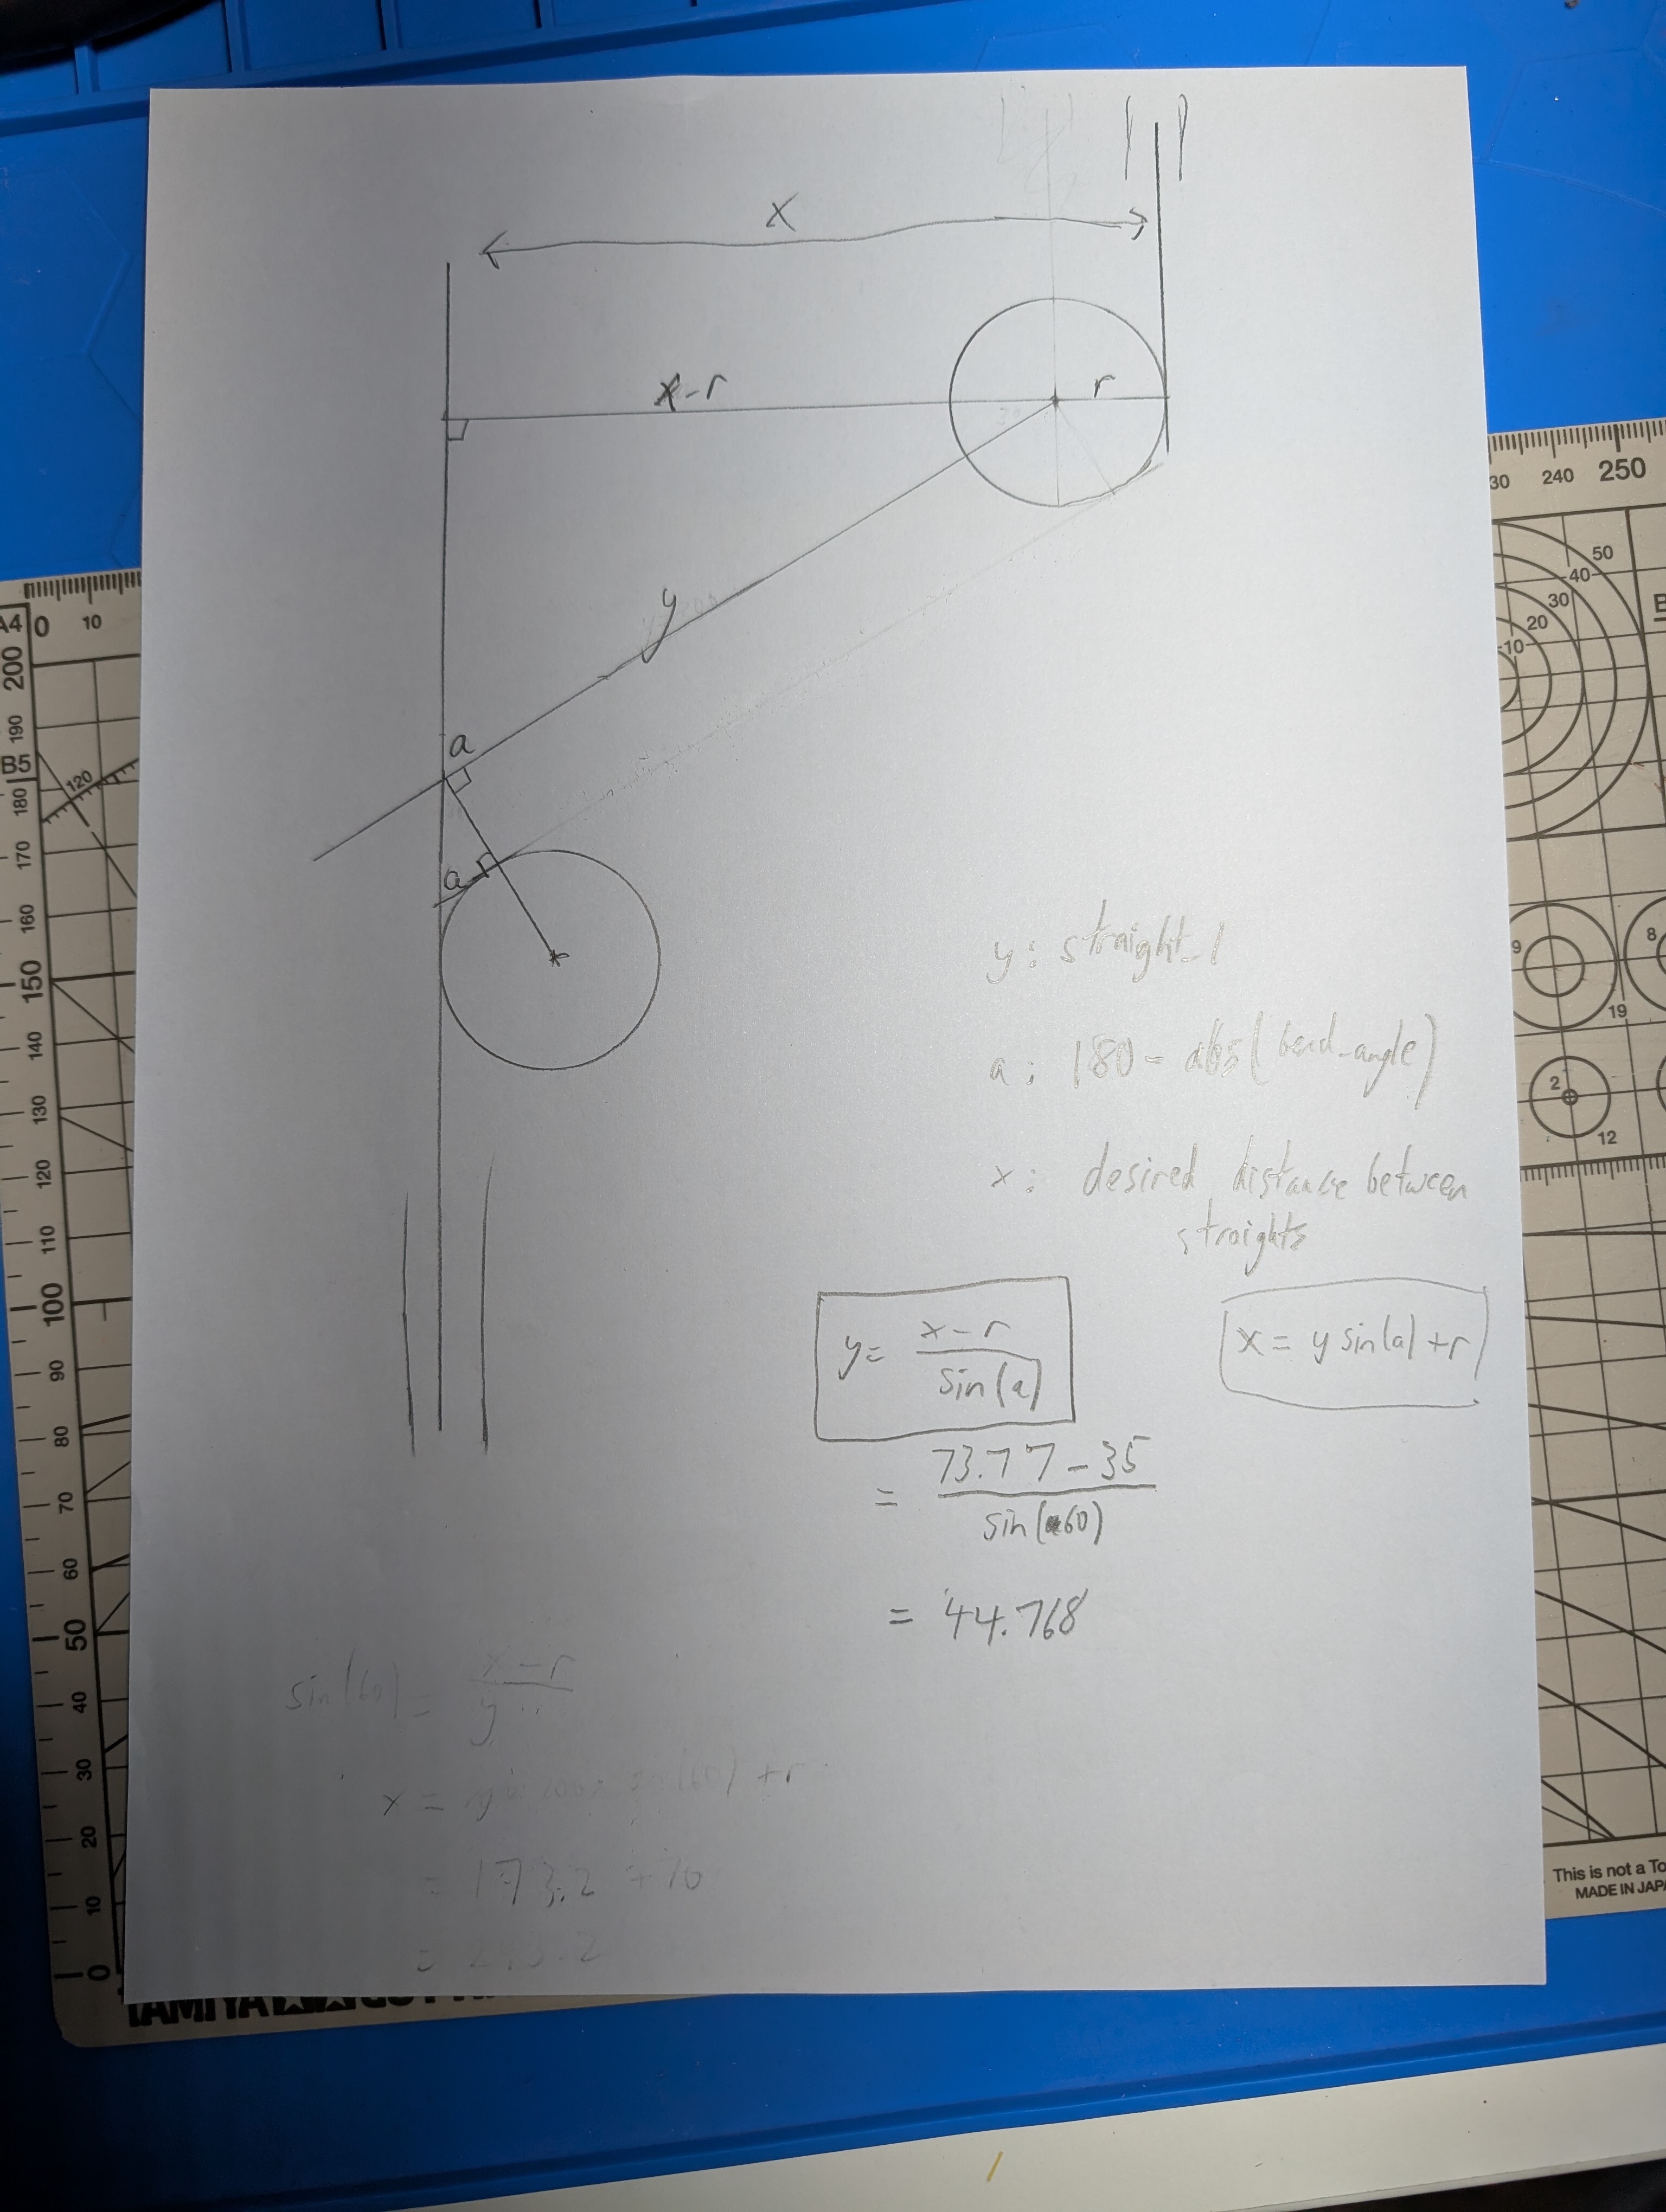 x
x-r
r
y
a
a
y: straight_1
a: 180 - abs(bend_angle)
x: desired distance between
straights
y= x-r / sin(a)
x = y sin(a) + r
= 73.77 - 35 / sin(60)
= 44.768
sin(60) = x-r / y
x = sin(60) + r
= 173.2 + 70
= 243.2
A4
0
10
200
190
B5
180
120
170
160
150
140
130
120
110
100
90
80
70
60
50
40
30
20
10
0
30
240
250
50
40
30
20
10
9
8
19
2
12
This is not a To
MADE IN JAPA
TAMIYA